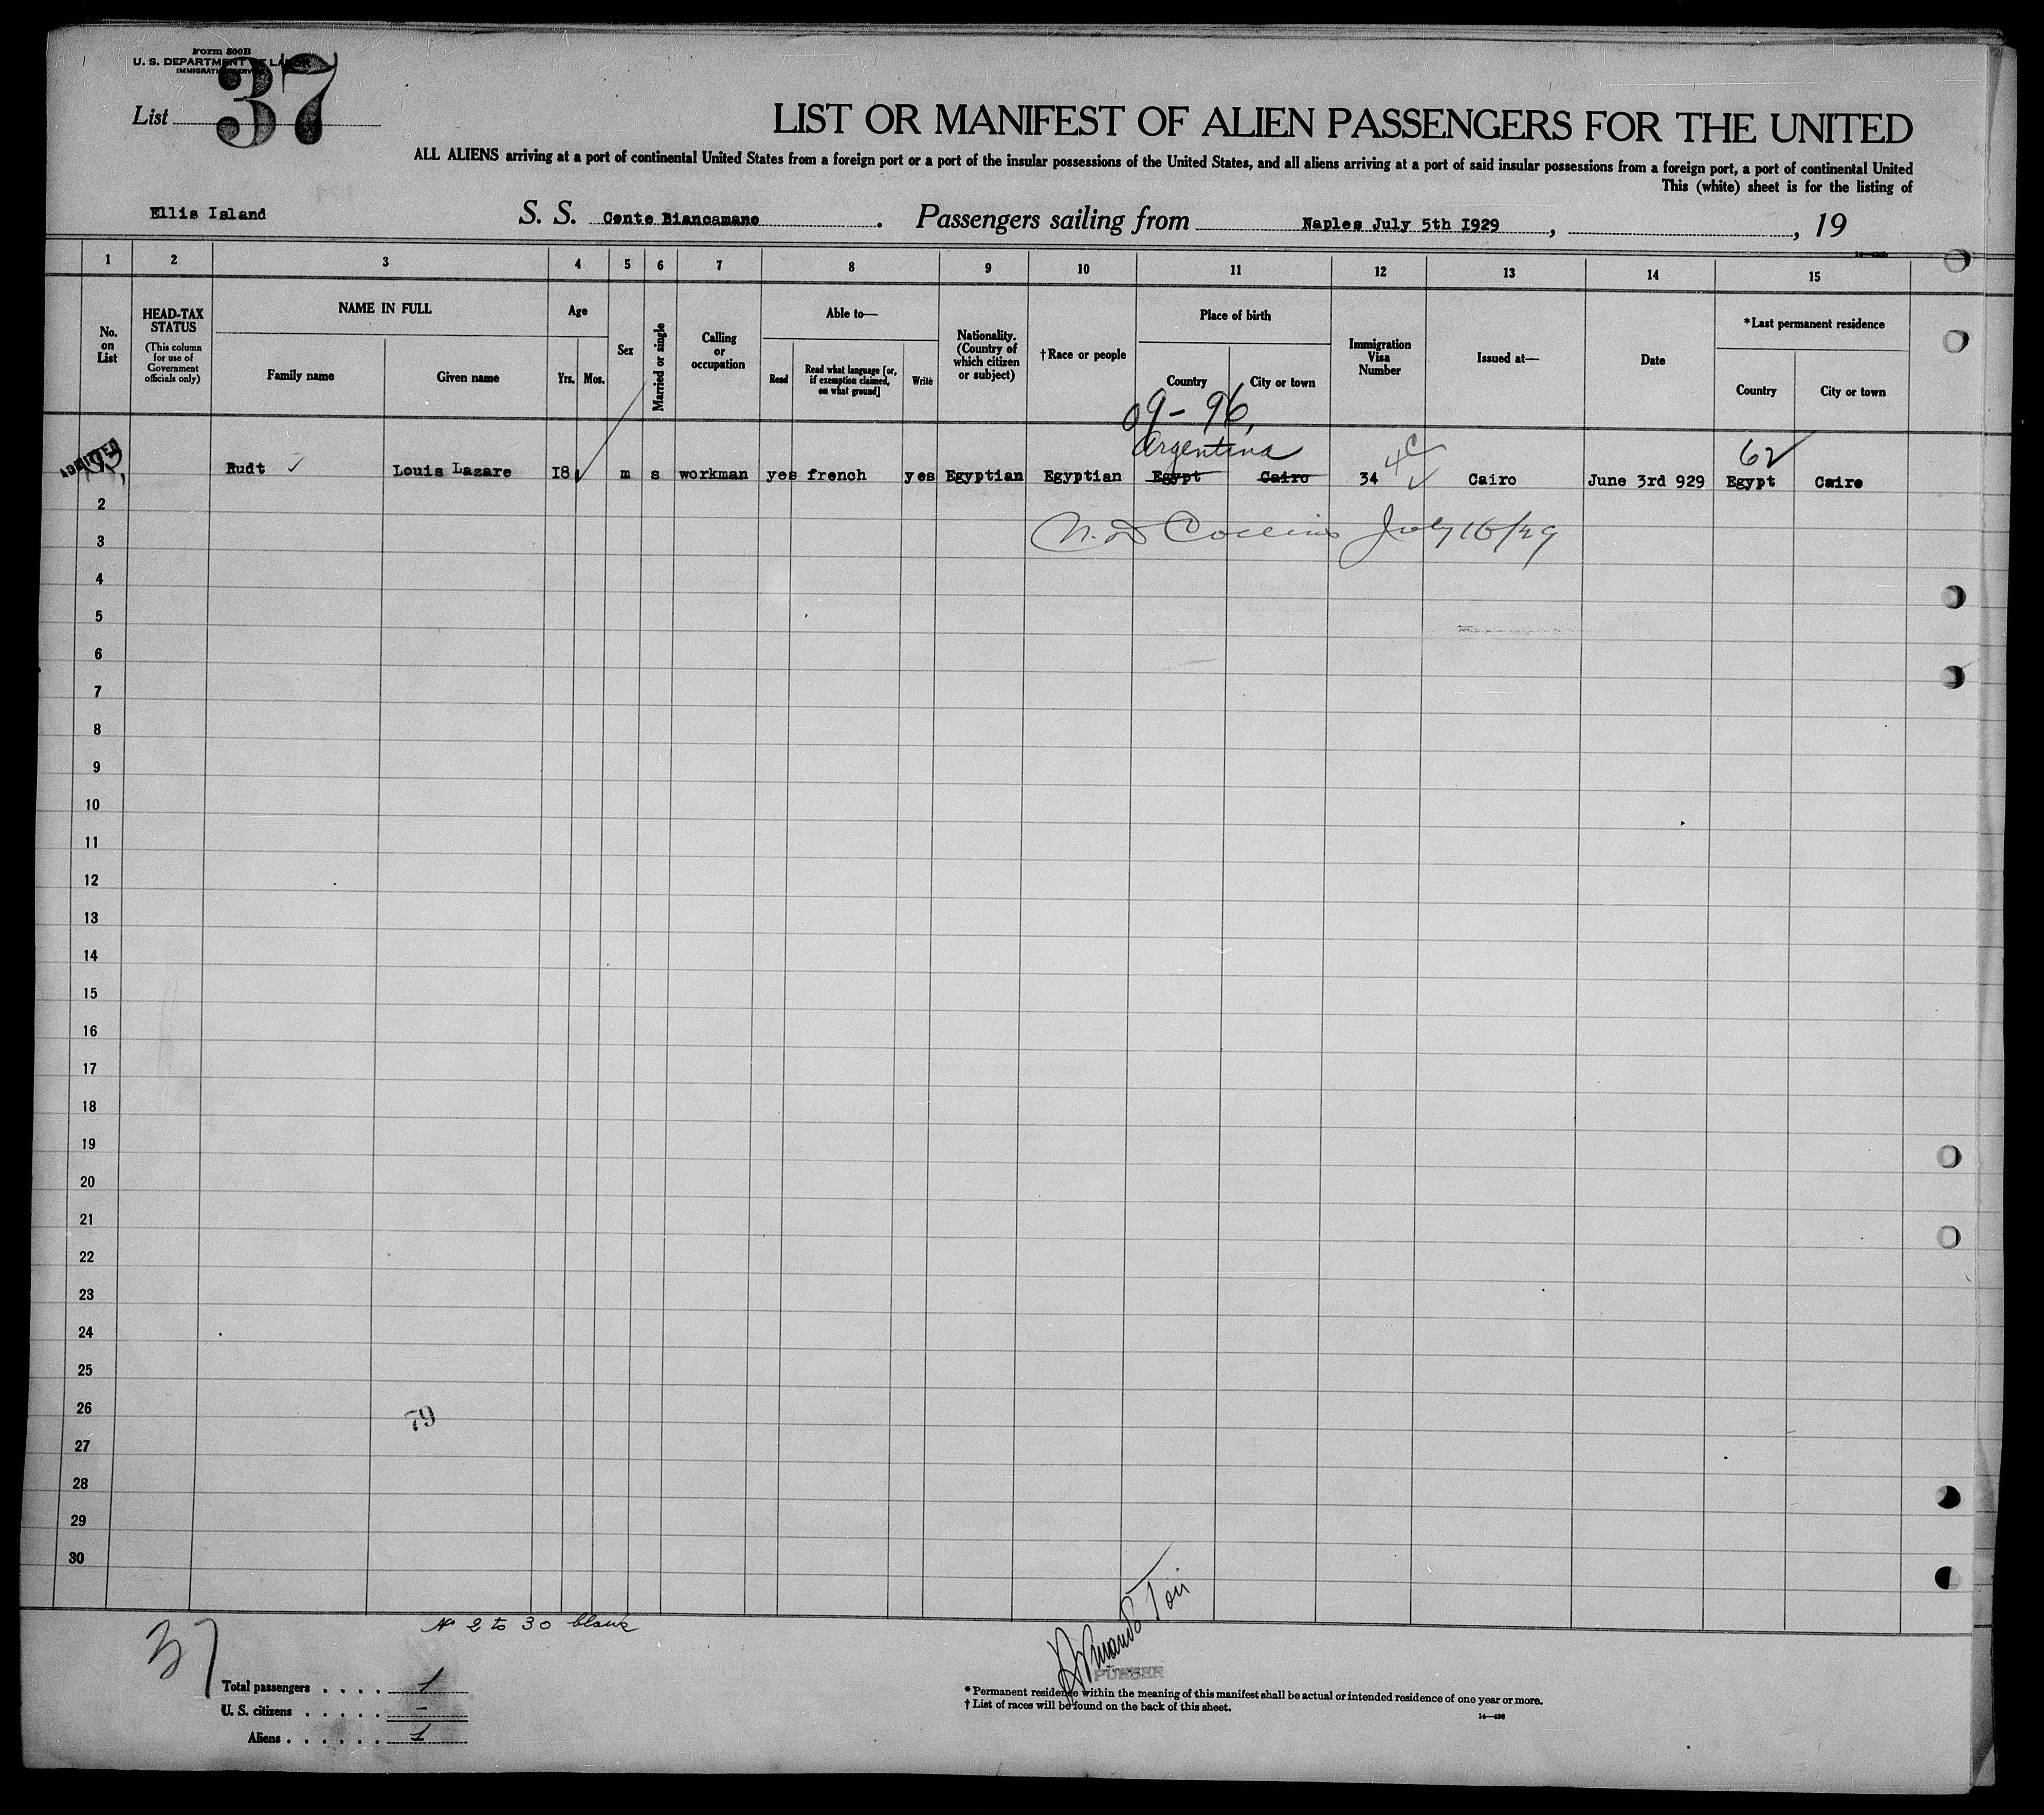 Form 500B
U. S. DEPARTMENT OF LABOR
IMMIGRATION SERVICE
List 37
LIST OR MANIFEST OF ALIEN PASSENGERS FOR THE UNITED
ALL ALIENS arriving at a port of continental United States from a foreign port or a port of the insular possessions of the United States, and all aliens arriving at a port of said insular possessions from a foreign port, a port of continental United
This (white) sheet is for the listing of
Ellis Island S. S. Conte Biancamano . Passengers sailing from Naples July 5th I929 , , 19
1 2 3 4 5 6 7 8 9 10 11 12 13 14 15
No. on List
HEAD-TAX STATUS
(This column for use of Government officials only)
NAME IN FULL
Family name Given name
Age
Yrs. Mos.
Sex
Married or single
Calling or occupation
Able to—
Read
Read what language [or, if exemption claimed, on what ground]
Write
Nationality. (Country of which citizen or subject)
†Race or people
Place of birth
Country City or town
Immigration Visa Number
Issued at—
Date
*Last permanent residence
Country City or town
09-96,
Argentina
62
ADMITTED Rudt ✓ Louis Lazare I8 m s workman yes french yes Egyptian Egyptian Egypt Cairo 34 Cairo June 3rd 929 Egypt Cairo
2
Collins July 16/29
3
4
5
6
7
8
9
10
11
12
13
14
15
16
17
18
19
20
21
22
23
24
25
26
79
27
28
29
30
No 2 to 30 blank
37
PURSER
Total passengers . . . . 1
U. S. citizens . . . . . -
Aliens . . . . . . 1
* Permanent residence within the meaning of this manifest shall be actual or intended residence of one year or more.
† List of races will be found on the back of this sheet.